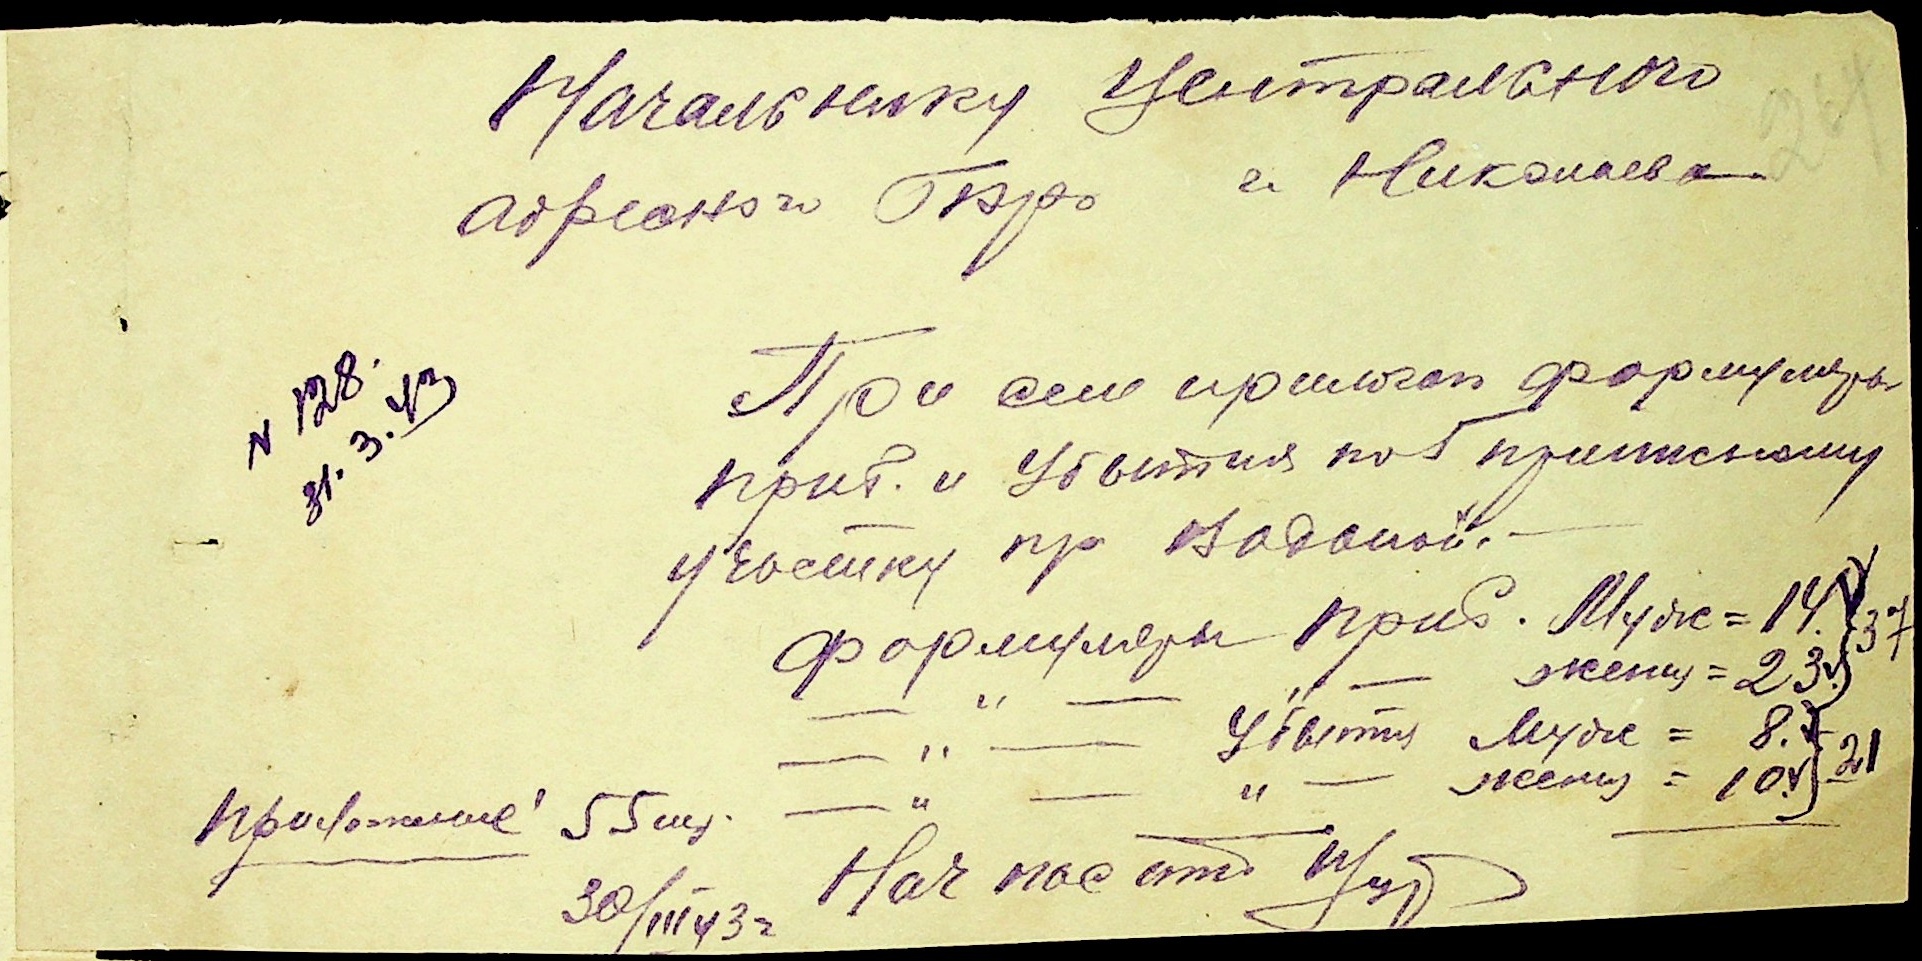 Начальнику Центрального
адресного Бюро г. Николаева
264
N 128.
31. 3. 43
При сем прилогаю формуляры
приб. и убытия по 5 приписному
участку пр Водопой. —
Формуляры приб. Муж = 14. } 37
— " — " — женщ = 23. }
— " — Убытия Муж = 8. } 21
— " — " — женщ = 10. }
Приложение: 55 шт.
Нач пас ст
30/III 43 г